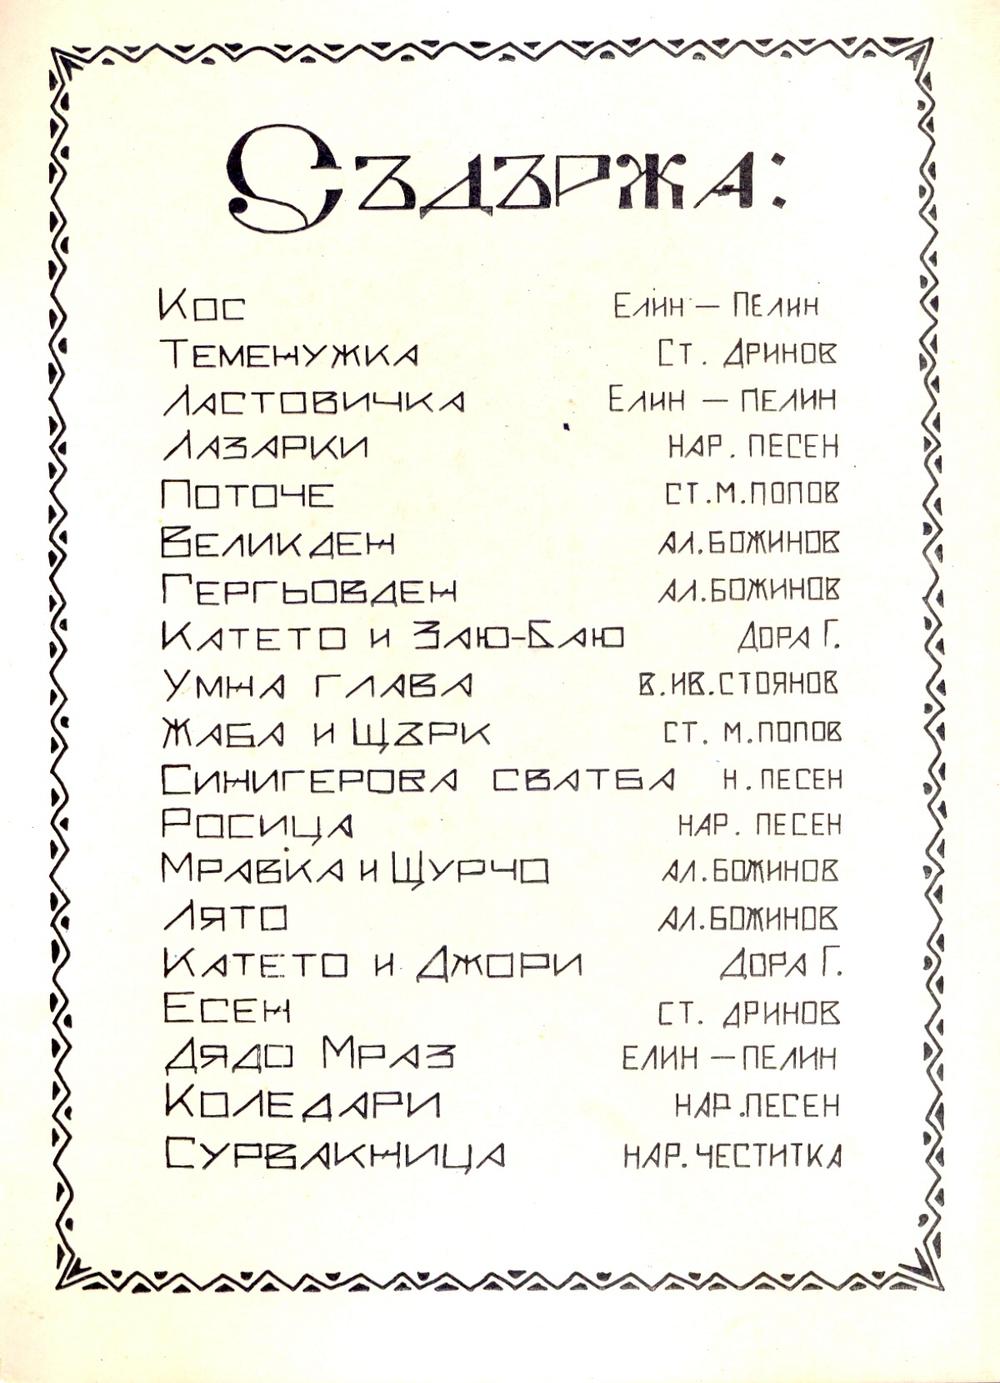 Съдържа:
Кос Елин — Пелин
Теменужка Ст. Дринов
Ластовичка Елин — Пелин
Лазарки нар. песен
Поточе ст. м. попов
Великден ал. божинов
Гергьовден ал. божинов
Катето и Заю-Баю Дора Г.
Умна глава в. ив. стоянов
Жаба и Щърк ст. м. попов
Синигерова сватба н. песен
Росица нар. песен
Мравка и Щурчо ал. божинов
Лято ал. божинов
Катето и Джори Дора Г.
Есен ст. дринов
Дядо Мраз елин — пелин
Коледари нар. песен
Сурвакница нар. честитка